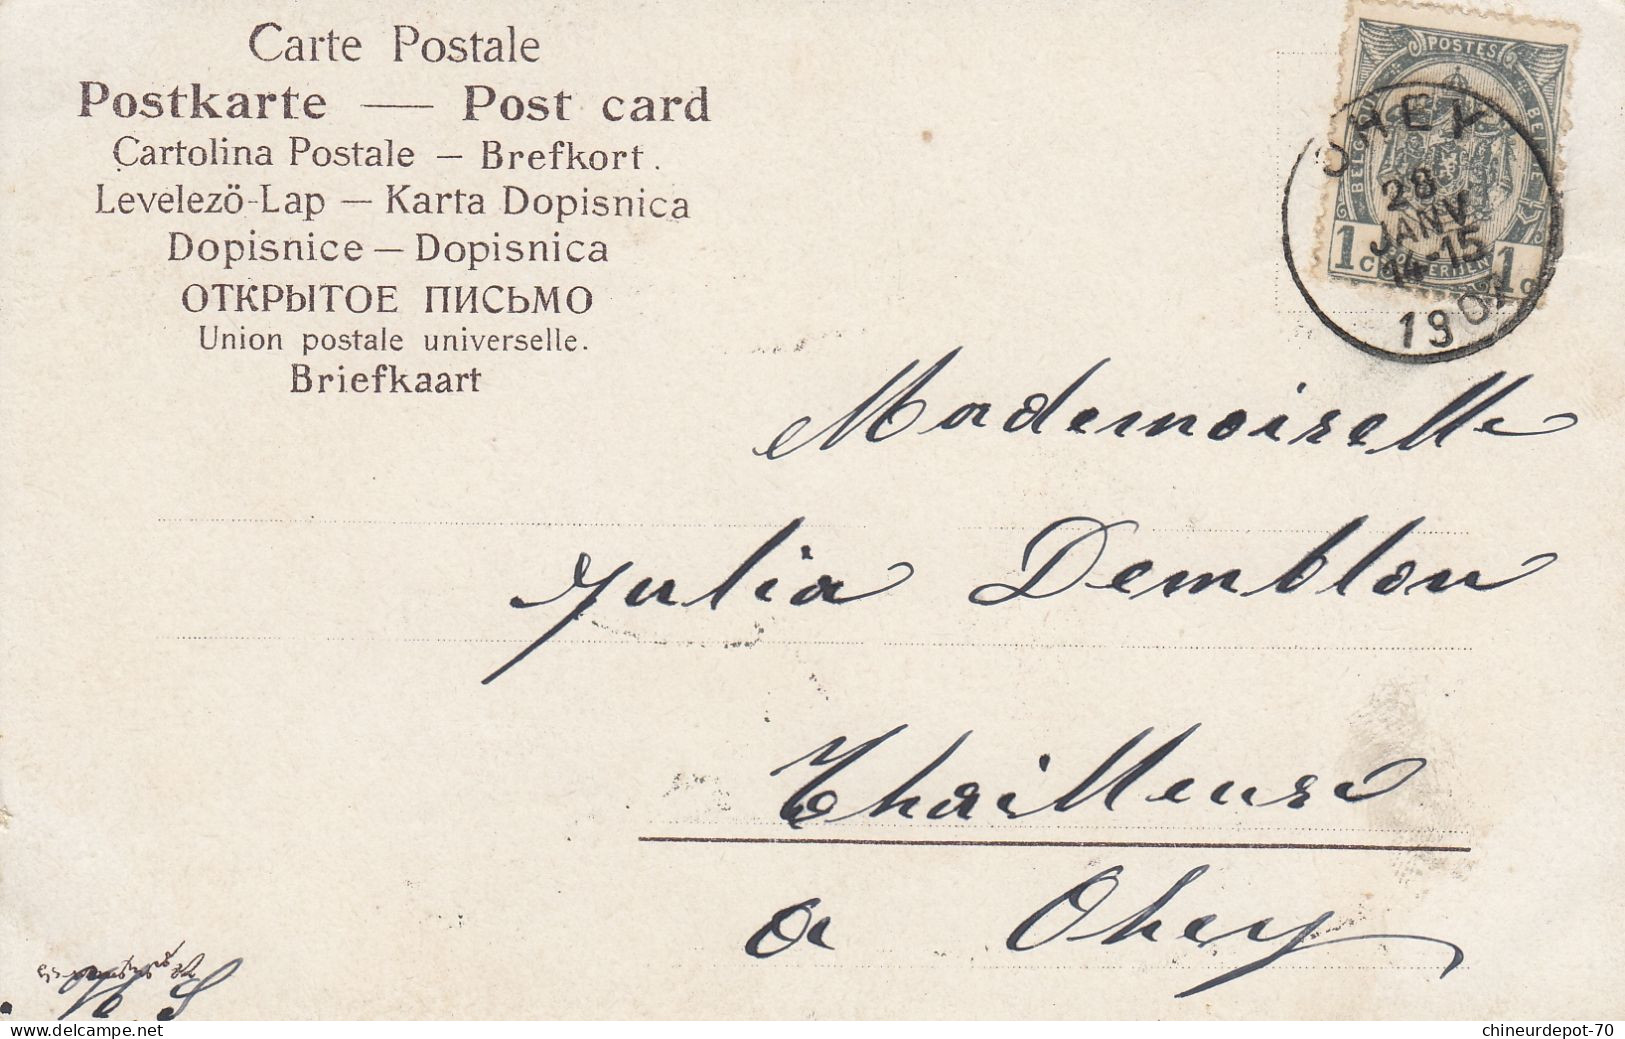 Carte Postale
Postkarte — Post card
Cartolina Postale — Brefkort.
Levelezö-Lap — Karta Dopisnica
Dopisnice — Dopisnica
ОТКРЫТОЕ ПИСЬМО
Union postale universelle.
Briefkaart
POSTES
BELGIQUE BELGIE
1 C 1 C
OHEY
28
JANV
14-15
1907
Mademoiselle
Julia Demblon
Thailleuse
a Ohey
delcampe.net
chineurdepot-70